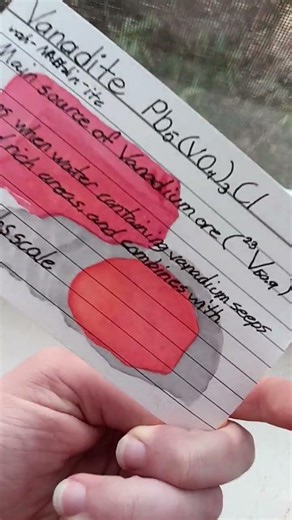 Vanadite Pb₅(VO₄)₃Cl
Main source of Vanadium ore (²³V₅₀.₉)
when water containing vanadium seeps
rich areas, and combines with